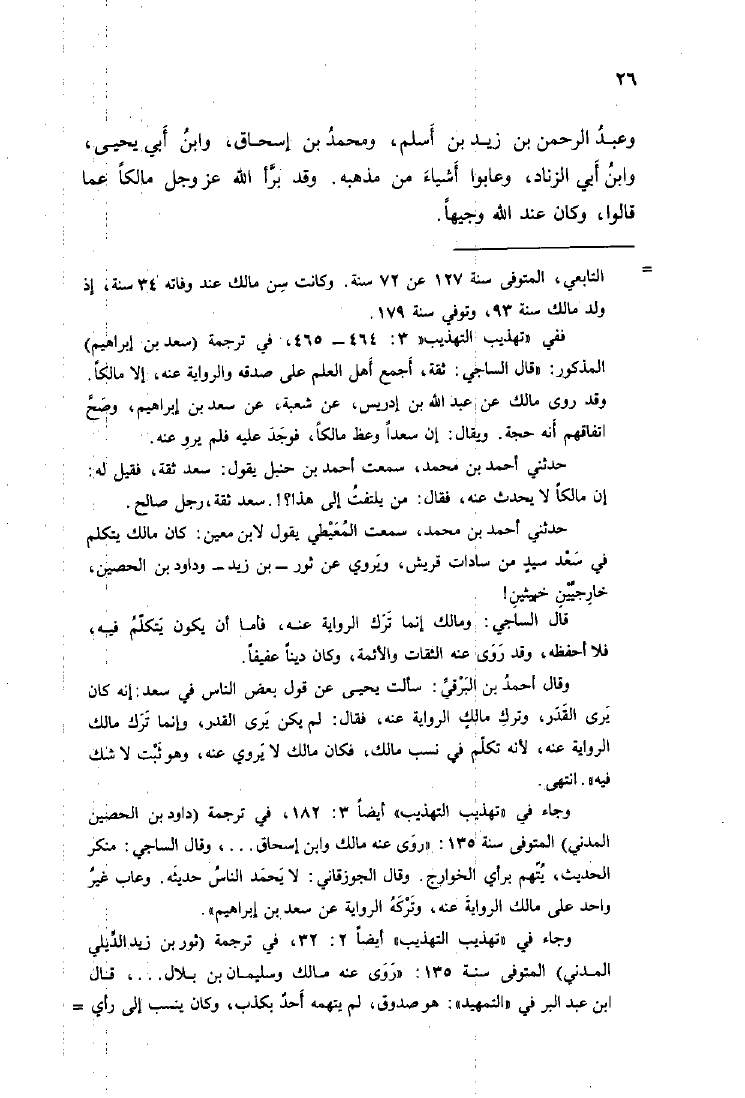 ٢٦
وعبدُ الرحمن بن زيـد بن أَسلم، ومحمدُ بن إسحاق، وابنُ أَبي يحيـى،
وابنُ أَبي الزناد، وعابوا أَشياءَ من مذهبه. وقد برَّأ الله عز وجل مالكاً عما
قالوا، وكان عند الله وجيهاً.
= التابعي، المتوفى سنة ١٢٧ عن ٧٢ سنة. وكانت سِن مالك عند وفاته ٣٤ سنة، إذ
ولد مالك سنة ٩٣، وتوفي سنة ١٧٩.
ففي «تهذيب التهذيب» ٣: ٤٦٤ ــ ٤٦٥، في ترجمة (سعد بن إبراهيم)
المذكور: «قال الساجي: ثقة، أجمع أَهل العلم على صدقه والرواية عنه، إلا مالكاً.
وقد روى مالك عن عبد الله بن إدريس، عن شعبة، عن سعد بن إبراهيم، وصَحَّ
اتفاقهم أَنه حجة. ويقال: إن سعداً وعظ مالكاً، فوجَدَ عليه فلم يرو عنه.
حدثني أحمد بن محمد، سمعت أحمد بن حنبل يقول: سعد ثقة، فقيل له:
إن مالكاً لا يحدث عنه، فقال: من يلتفتُ إلى هذا؟!. سعد ثقة، رجل صالح.
حدثني أحمد بن محمد، سمعت المُعَيْطي يقول لابن معين: كان مالك يتكلم
في سَعْد سيدٍ من سادات قريش، ويَروي عن ثور ــ بن زيد ــ وداود بن الحصين،
خارجيَّيْنِ خبيثينِ!
قال الساجي: ومالك إنما تَرَك الرواية عنـه، فأمـا أن يكون يَتكلّمُ فيـه،
فلا أحفظه، وقد رَوَى عنه الثقات والأئمة، وكان ديناً عفيفاً.
وقال أحمدُ بن البَرْقيِّ: سألت يحيـى عن قول بعض الناس في سعد: إنه كان
يَرى القَدَر، وتركِ مالكٍ الرواية عنه، فقال: لم يكن يَرى القدر، وإنما تَرَك مالك
الرواية عنه، لأنه تكلّم في نسب مالك، فكان مالك لا يَروي عنه، وهو ثَبْت لا شك
فيه». انتهى.
وجاء في «تهذيب التهذيب» أيضاً ٣: ١٨٢، في ترجمة (داود بن الحصين
المدني) المتوفى سنة ١٣٥: «روَى عنه مالك وابن إسحاق...، وقال الساجي: منكر
الحديث، يُتَّهم برأي الخوارج. وقال الجوزقاني: لا يَحمَد الناسُ حديثَه. وعاب غيرُ
واحد على مالك الروايةَ عنه، وتَرْكَهُ الرواية عن سعد بن إبراهيم».
وجاء في «تهذيب التهذيب» أيضاً ٢: ٣٢، في ترجمة (ثور بن زيد الدِّيلي
المـدني) المتوفى سنـة ١٣٥: «رَوَى عنه مـالك وسليمـان بن بـلال...، قـال
ابن عبد البر في «التمهيد»: هو صدوق، لم يتهمه أَحدٌ بكذب، وكان ينسب إلى رأي =